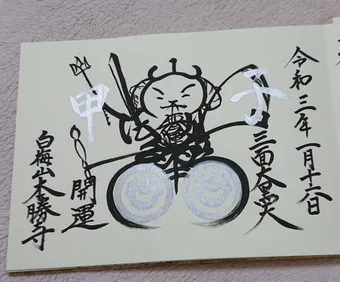 令和三年一月十六日
三面大黒天
甲子
開運
白梅山本勝寺